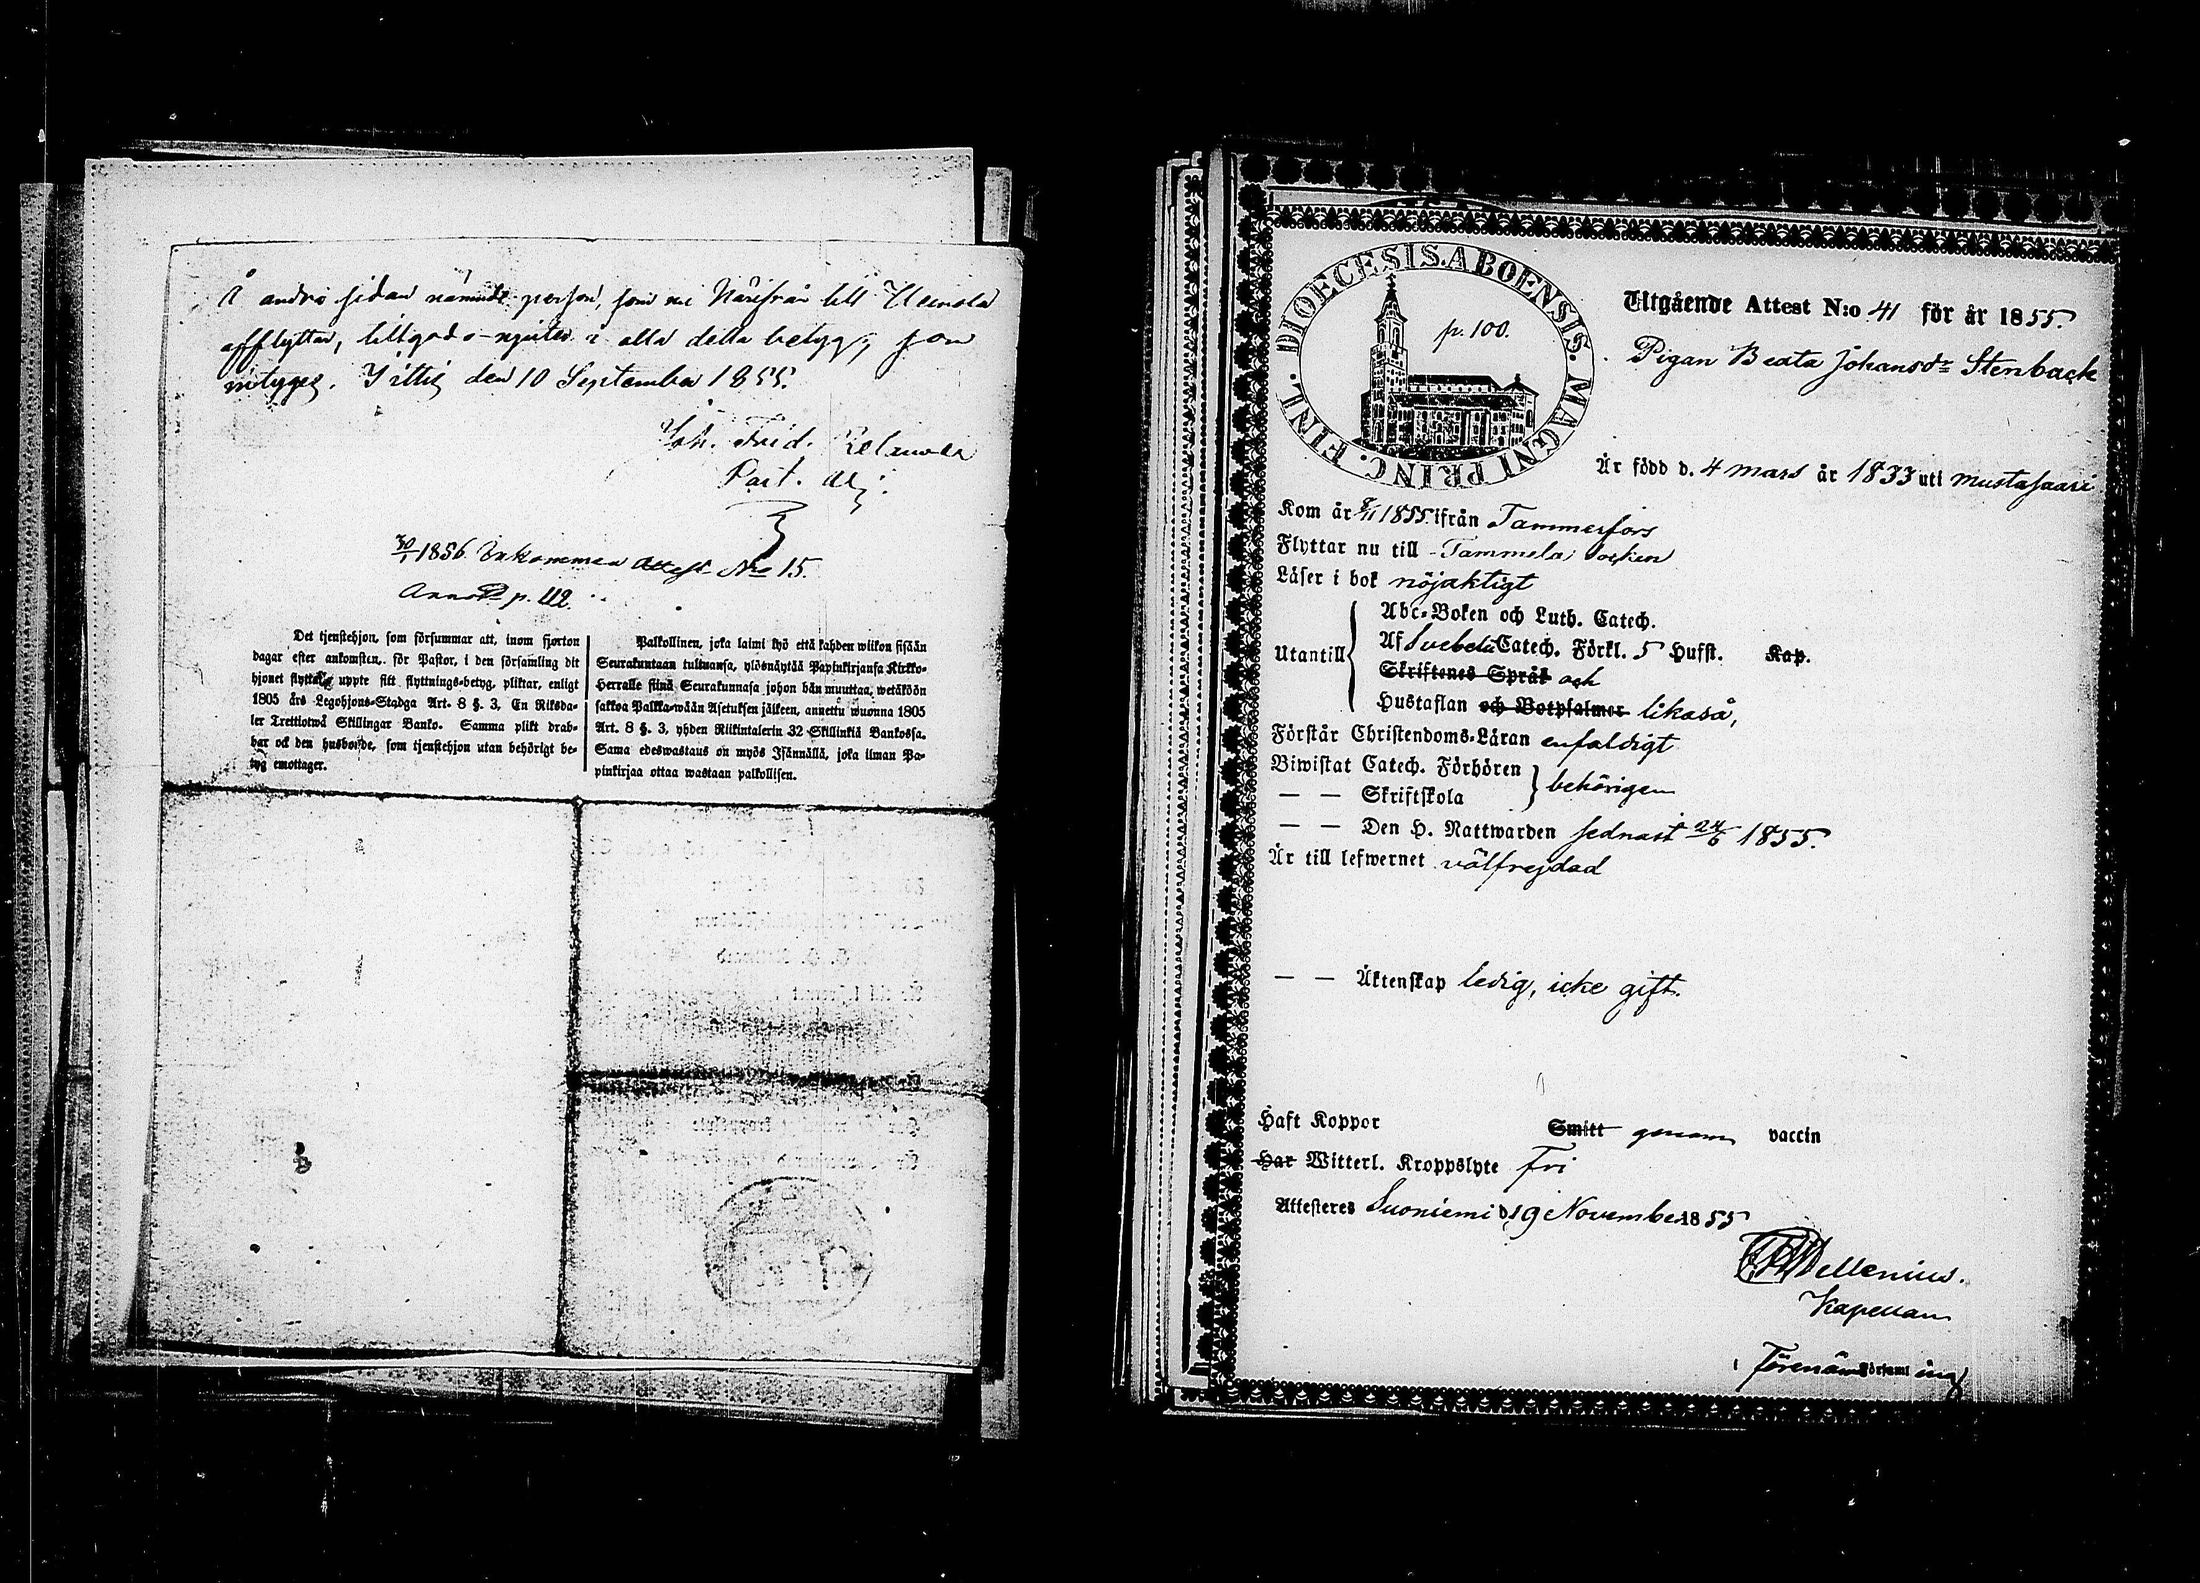 Å andra sidan nämnde person, som nu härifrån till Heinola
afflyttar, tillgodo-njuter i alla delar betyg, som
intygas. Jittis den 10 September 1855.
Joh. Frid. Relander
Past. Adj.
30/1 1856 Inkommen Attest No 15.
p. 112.
Det tjenstehjon, som försummar att, inom fjorton
dagar efter ankomsten, för Pastor, i den församling dit
hjonet flyttat, uppte sitt flyttnings-betyg, pliktar, enligt
1805 års Legohjons-Stadga Art. 8 §. 3, En Riksda-
ler Trettiotwå Skillingar Banko. Samma plikt drab-
bar ock den husbonde, som tjenstehjon utan behörigt be-
tyg emottager.
Palkollinen, joka laimi lyö että kahden wiikon sisään
Seurakuntaan tultuansa, ylösnäyttää Papinkirjansa Kirkko-
Herralle siinä Seurakunnasa johon hän muuttaa, wetäköön
sakkoa Palkka-wään Asetuksen jälkeen, annettu wuonna 1805
Art. 8 §. 3, yhden Riikintalerin 32 Skillinkiä Bankossa.
Sama edeswastaus on myös Isännällä, joka ilman Pa-
pinkirjaa ottaa wastaan palkollisen.
DIOECESIS. ABOENSIS. MAGNI PRINC. FINL.
p. 100.
Utgående Attest N:o 41 för år 1855.
Pigan Beata Johansdr Stenback
Är född d. 4 mars år 1833 uti Mustasaari
Kom år 8/11 1855 ifrån Tammerfors
Flyttar nu till Tammela socken
Läser i bok nöjaktigt
Utantill
Abc-Boken och Luth. Catech.
Af Svebelii Catech. Förkl. 5 Hufst. Kap.
Skriftenes Språk och
Hustaflan och Botpsalmer likaså,
Förstår Christendoms-Läran enfaldigt
Biwistat Catech. Förhören
— — Skriftskola
behörigen
— — Den H. Nattwarden sednast 24/6 1855.
Är till lefwernet välfrejdad
— — Äktenskap ledig, icke gift.
Haft Koppor Smitt genom vaccin
Har Witterl. Kroppslyte Fri
Attesteres Suoniemi d. 19 November 1855
Wellenius.
Kapellan
i förenämd församling